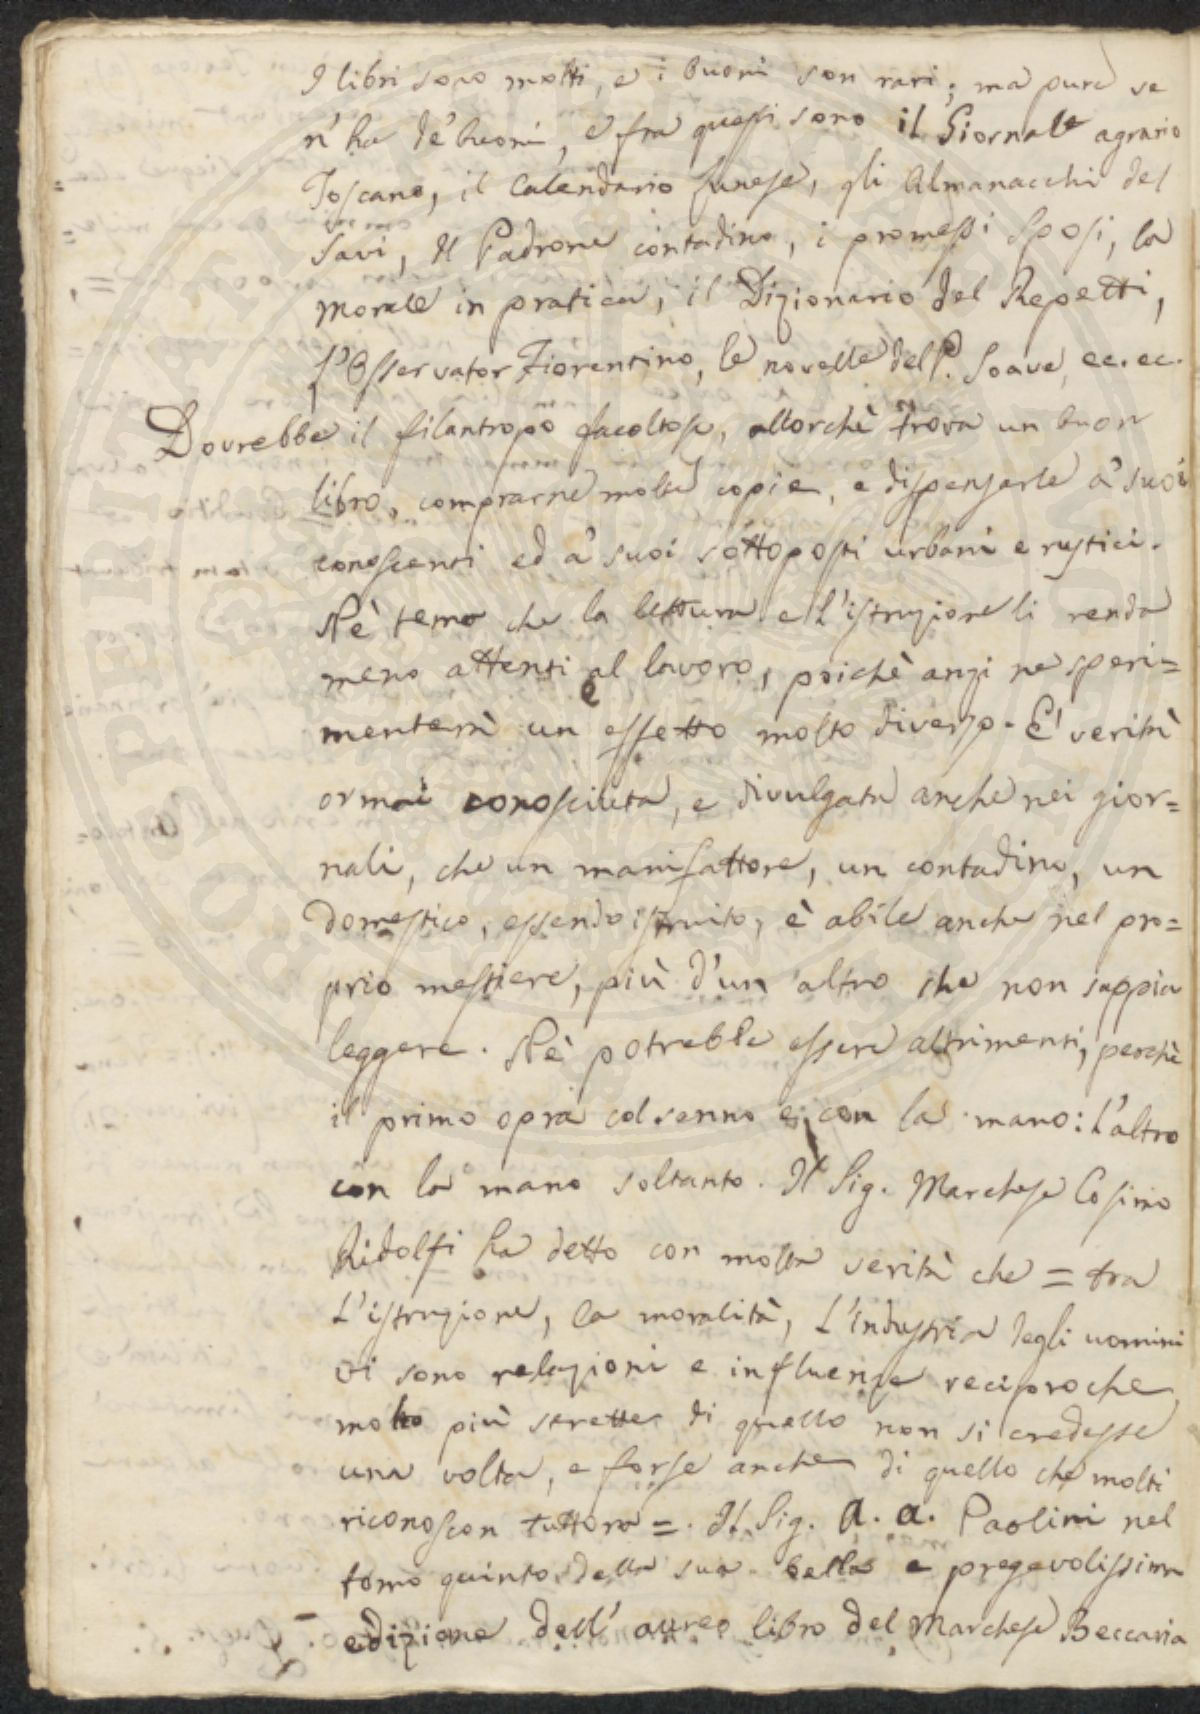 I libri sono molti, e i buoni son rari; ma pure se
n'ha de' buoni, e fra questi sono il Giornale agrario
Toscano, il Calendario lunese, gli Almanacchi del
Savi, Il Padrone contadino, i promessi Sposi, la
morale in pratica, il Dizionario del Repetti,
l'Osservator Fiorentino, le novelle del P. Soave, ec. ec.
Dovrebbe il filantropo facoltoso, allorchè trova un buon
libro, comprarne molte copie, e dispensarle a' suoi
conoscenti ed a' suoi sottoposti urbani e rustici.
Nè temo che la lettura e l'istruzione li renda
meno attenti al lavoro, poichè anzi ne speri=
menterà un effetto molto diverso. E' verità
ormai conosciuta, e divulgata anche nei gior=
nali, che un manifattore, un contadino, un
domestico, essendo istruito, è abile anche nel pro=
prio mestiere, più d'un altro che non sappia
leggere. Nè potrebbe essere altrimenti, perchè
il primo opra col senno e con la mano: l'altro
con la mano soltanto. Il Sig. Marchese Cosimo
Ridolfi ha detto con molta verità che = tra
l'istruzione, la moralità, l'industria degli uomini
vi sono relazioni e influenze reciproche
molto più strette di quello non si credesse
una volta, e forse anche di quello che molti
riconoscon tuttora =. Il Sig. A. A. Paolini nel
tomo quinto della sua bella e pregevolissima
edizione dell' aureo libro del Marchese Beccaria